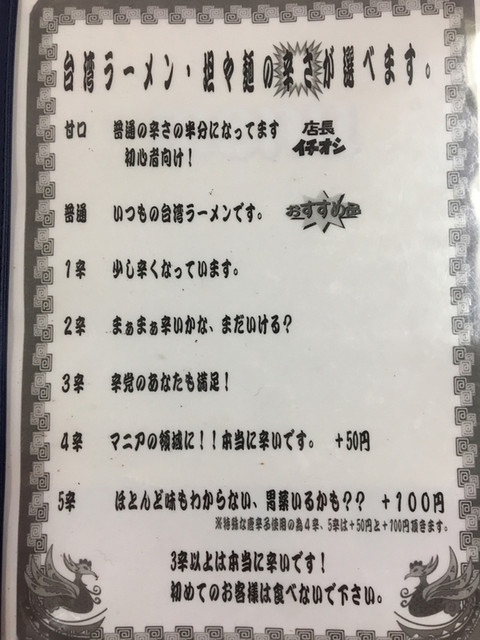 台湾ラーメン・担々麺の辛さが選べます。
甘口 普通の辛さの半分になってます 店長
初心者向け! イチオシ
普通 いつもの台湾ラーメンです。 おすすめ
1辛 少し辛くなっています。
2辛 まぁまぁ辛いかな、まだいける?
3辛 辛党のあなたも満足!
4辛 マニアの領域に!!本当に辛いです。 +50円
5辛 ほとんど味もわからない、胃薬いるかも?? +100円
※特殊な唐辛子使用の為4辛、5辛は+50円と+100円頂きます。
3辛以上は本当に辛いです!
初めてのお客様は食べないで下さい。